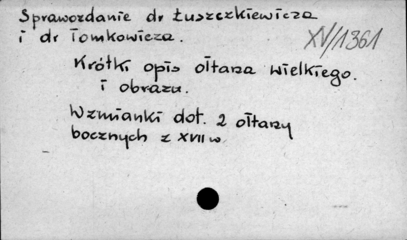 Sprawozdanie dr Łuszczkiewicza
i dr Tomkowicza.
XV/1361
Krótki opis ołtarza wielkiego.
i obrazu.
Wzmianki dot. 2 ołtarzy
bocznych z XVII w.